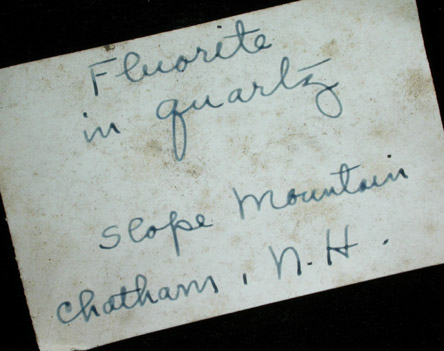 Fluorite
in quartz
Slope Mountain
Chatham, N.H.